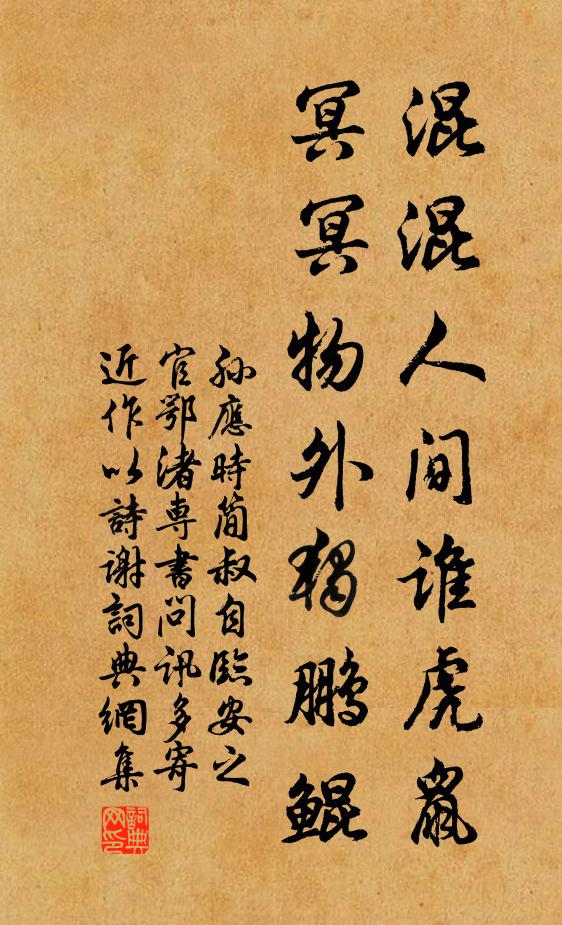 混混人间谁虎鼠
冥冥物外独鹏鲲
孙應時简叔自臨安之
官鄂渚専書問訊多寄
近作以詩谢詞典網集
詞典网印